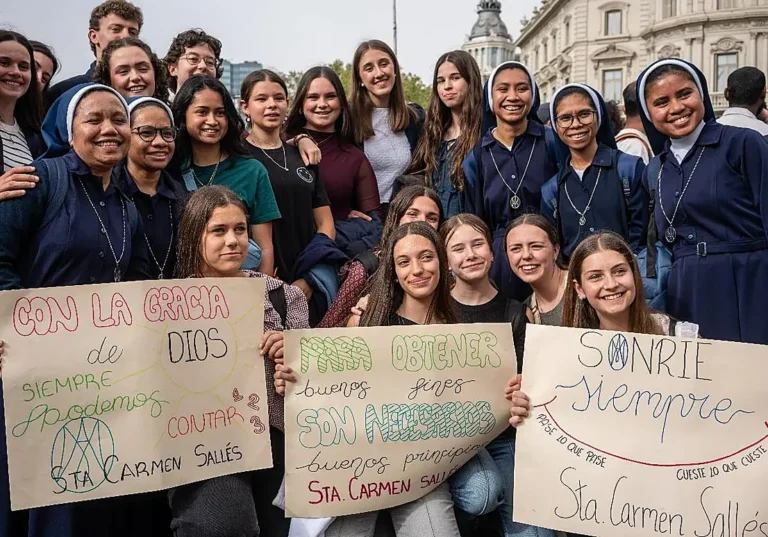 CON LA GRACIA
de DIOS
SIEMPRE
podemos
CONTAR 1 2 3
STA. CARMEN SALLÉS
PARA OBTENER
buenos fines
SON NECESARIOS
buenos principios
STA. CARMEN SALLÉS
SONRIE
siempre
PASE LO QUE PASE
CUESTE LO QUE CUESTE
Sta. Carmen Sallés